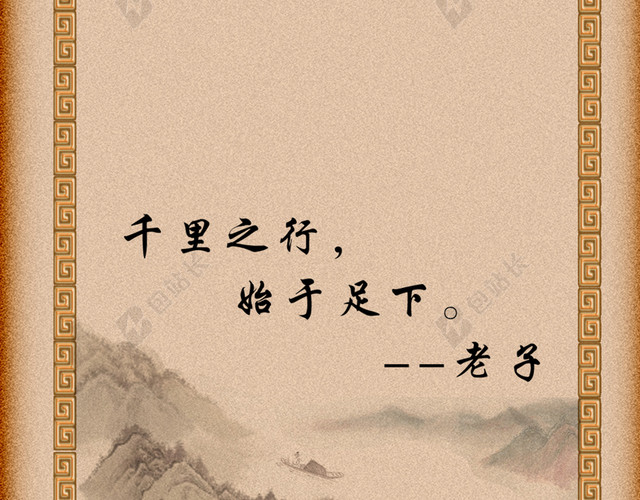 千里之行，
始于足下。
——老子
包站长
包站长